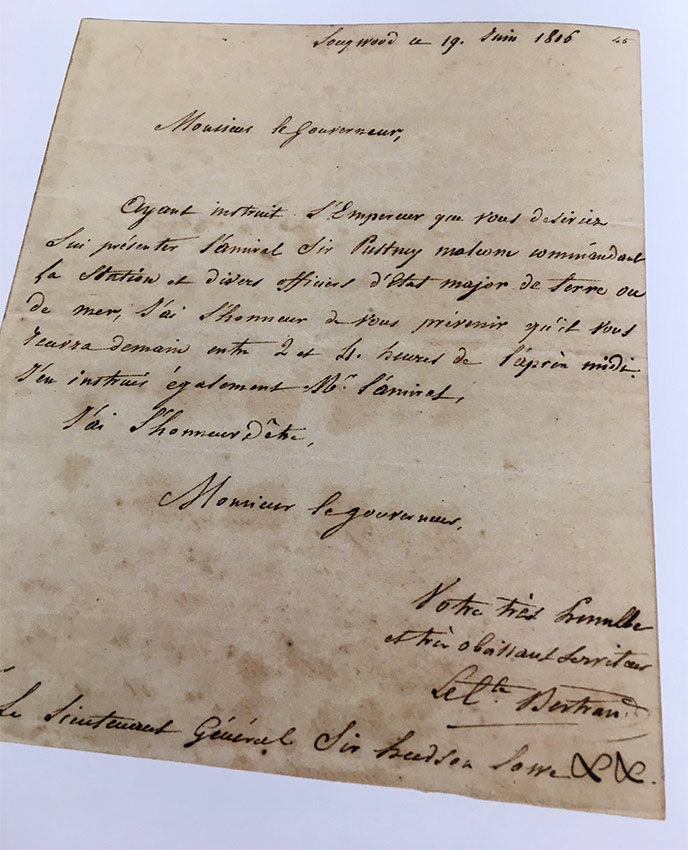 Longwood ce 19. Juin 1816
45
Monsieur le Gouverneur,
Ayant instruit l'Empereur que vous desiriez
lui présenter l'amiral Sir Pultney malcom commandant
la Station et divers officiers d'Etat major de terre ou
de mer, J'ai l'honneur de vous prévenir qu'il vous
recevra demain entre 2 et 4. heures de l'après midi.
J'en instruis également Mr. l'amiral,
J'ai l'honneur d'être,
Monsieur le gouverneur,
Votre très humble
et très obéissant serviteur
Le Cte. Bertrand
Le Lieutenant Général Sir hudson Lowe